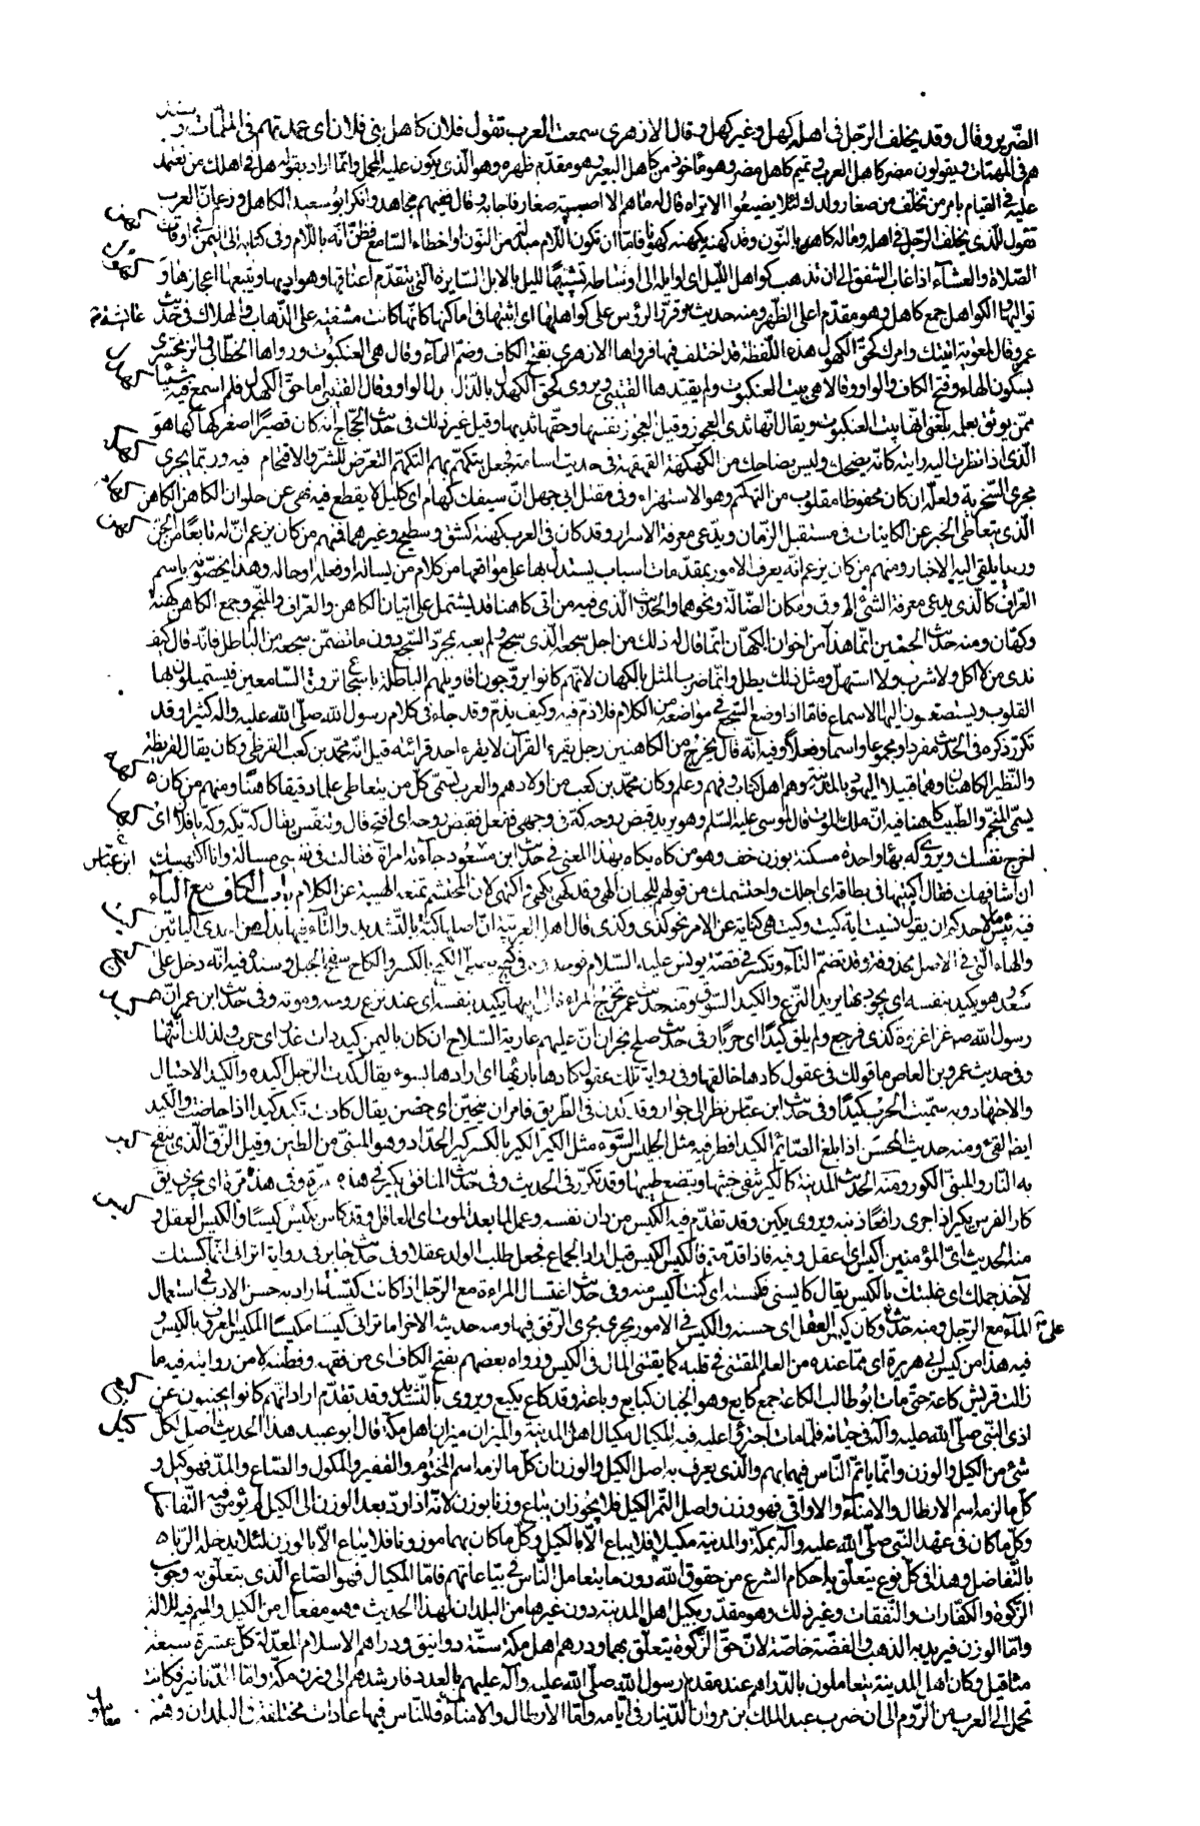 الضرير وقال وقد يخلف الرجل فى اهله كهل وغير كهل وقال الازهرى سمعت العرب تقول فلان كاهل بنى فلان اى عمدتهم فى الملمات وسندهم
هم فى المهمات ويقولون مضر كاهل العرب وتميم كاهل مضر وهو ماخوذ من كاهل البعير وهو مقدم ظهره وهو الذى يكون عليه المحمل وانما اراد بقوله هل فى اهلك من تعتمد
عليه فى القيام بامر من تخلف من صغار ولدك لئلا يضيعوا الا تراه قال له ما هم الا اصيبية صغار فاجابه وقال ففيهم فجاهد وانكر ابو سعيد الكاهل وزعم ان العرب
تقول للذى يخلف الرجل فى اهله وماله كاهن بالنون وقد كهنه يكهنه كهونا فاما ان تكون اللام مبدلة من النون او اخطاء السامع فظن انه باللام وفى كتابه الى اليمن فى اوقات
الصلاة والعشآء اذا غاب الشفق الى ان تذهب كواهل الليل اى اوايله الى اوساطه تشبيها لليل بالابل السايرة التى تتقدم اعناقها وهواديها ويتبعها اعجازها و
تواليها الكواهل جمع كاهل وهو مقدم اعلى الظهر ومنه حديث عايشة وقرر الرؤس على كواهلها اى اثبتها فى اماكنها كانها كانت مشفية على الذهاب والهلاك فى حديث
عمرو قال لمعوية اتيتك وامرك كحق الكهول هذه اللفظة قد اختلف فيها فرواها الازهرى بفتح الكاف وضم الهآء وقال هى العنكبوت ورواها الخطابى والزمخشرى
بسكون الهاء وفتح الكاف والواو وقالا هى بيت العنكبوت ولم يقيدها القتيبى ويروى كحق الكهدل بالدال بدل الواو وقال القتيبى اما حق الكهدل فلم اسمع فيه شيئا
ممن يوثق بعلمه بلغنى انها بيت العنكبوت ويقال انها ثدى العجوز وقيل العجوز نفسها وحقها ثديها وقيل غير ذلك فى حديث الحجاج انه كان قصيرا اصغر كهاكها هو
الذى اذا نظرت اليه رايته كانه يضحك وليس بضاحك من الكهكهة القهقهة فى حديث اسامة فجعل يتكهم بهم التكهم التعرض للشر والاقتحام فيه وربما يجرى
مجرى السخرية ولعله ان كان محفوظا مقلوب من التهكم وهو الاستهزاء وفى مقتل ابى جهل ان سيفك كهام اى كليل لا يقطع فيه نهى عن حلوان الكاهن الكاهن
الذى يتعاطى الخبر عن الكاينات فى مستقبل الزمان ويدعى معرفة الاسرار وقد كان فى العرب كهنة كشق وسطيح وغيرهما فمنهم من كان يزعم ان له تابعا من الجن
ورئيا يلقى اليه الاخبار ومنهم من كان يزعم انه يعرف الامور بمقدمات اسباب يستدل بها على مواقعها من كلام من يساله او فعله او حاله وهذا يخصونه باسم
العراف كالذى يدعى معرفة الشئ المسروق ومكان الضالة ونحوهما والحديث الذى فيه من اتى كاهنا قد يشتمل على اتيان الكاهن والعراف والمنجم وجمع الكاهن كهنة
وكهان ومنه حديث الجنين انما هذا من اخوان الكهان انما قال له ذلك من اجل سجعه الذى سجع ولم يعبه بمجرد السجع دون ما تضمن سجعه من الباطل فانه قال كيف
ندى من لا اكل ولا شرب ولا استهل ومثل ذلك يطل وانما ضرب المثل بالكهان لانهم كانوا يروجون اقاويلهم الباطلة باسجاع تروق السامعين فيستميلون بها
القلوب ويستصغون اليها الاسماع فاما اذا وضع السجع فى مواضعه من الكلام فلا ذم فيه وكيف يذم وقد جاء فى كلام رسول الله صلى الله عليه واله كثيرا وقد
تكرر ذكره فى الحديث مفردا ومجموعا واسما وفعلا وفيه انه قال يخرج من الكاهنين رجل يقرء القرآن لا يقرء احد قرائته قيل انه محمد بن كعب القرظى وكان يقال لقريظة
والنضير الكاهنان وهما قبيلا اليهود بالمدينة وهم اهل كتاب وفهم وعلم وكان محمد بن كعب من اولادهم والعرب تسمى كل من يتعاطى علما دقيقا كاهنا ومنهم من كان
يسمى المنجم والطبيب كاهنا فيه ان ملك الموت قال لموسى عليه السلم وهو يريد قبض روحه كه فى وجهى ففعل فقبض روحه اى افتح فاك وتنفس يقال كه يكه وكه يا فلان اى
اخرج نفسك ويروى كه بهاء واحدة مسكنة بوزن خف وهو من كاه يكاه بهذا المعنى فى حديث ابن عباس جآءته امرأة فقالت فى نفسى مسالة وانا اكتهيك
ان اشافهك فقال اكتبيها فى بطاقة اى اجلك واحتشمك من قولهم للجبان اكهى وقد كهى يكهى واكتهى لان المحتشم تمنعه الهيبة عن الكلام باب الكاف مع اليآء
فيه بئس ما لاحدكم ان يقول نسيت اية كيت وكيت هى كناية عن الامر نحو كذى وكذى قال اهل العربية ان اصلها كية بالتشديد والتآء فيها بدل من احدى اليائين
والهاء التى فى الاصل محذوفة وقد تضم التآء وتكسر فى قصة يونس عليه السلام الكيح بالكسر والكاح سفح الجبل وسنده فيه انه دخل على
سعد وهو يكيد بنفسه اى يجود بها يريد النزع والكيد السوق ومنه حديث عمر تخرج المراءة الى ابيها يكيد بنفسه اى عند نزع روحه وموته وفى حديث ابن عمر ان
رسول الله صم غزا غزوة كذى فرجع ولم يلق كيدا اى حربا وفى حديث صلح نجران ان عليهم عارية السلاح ان كان باليمن كيد ذات غدر اى حرب ولذلك انثها
وفى حديث عمرو بن العاص ما قولك فى عقول كادها خالقها وفى رواية تلك عقول كادها بارئها اى ارادها بسوء يقال كدت الرجل اكيده والكيد الاحتيال
والاجتهاد وبه سميت الحرب كيدا وفى حديث ابن عباس نظر الى جوار وقد كدن فى الطريق فامر ان ينحين اى حضن يقال كادت تكيد كيدا اذا حاضت والكيد
ايضا القئ ومنه حديث الحسن اذا بلغ الصائم الكيد افطر فيه مثل الجليس السوء مثل الكير الكير بالكسر كير الحداد وهو المبنى من الطين وقيل الزق الذى ينفخ
به النار والمبنى الكور ومنه الحديث المدينة كالكير تنفى خبثها وينصع طيبها وقد تكرر فى الحديث وفى حديث المنافق يكير فى هذه مرة وفى هذه مرة اى يجرى يقال
كار الفرس يكير اذا جرى رافعا ذنبه ويروى يكبن وقد تقدم فيه الكيس من دان نفسه وعمل لما بعد الموت اى العاقل وقد كاس يكيس كيسا والكيس العقل و
منه الحديث اى المؤمنين اكيس اى اعقل وفيه فاذا قدمتم فالكيس الكيس قيل اراد الجماع فجعل طلب الولد عقلا وفى حديث جابر فى رواية اترانى انما كستك
لآخذ جملك اى غلبتك بالكيس يقال كايسنى فكسته اى كنت اكيس منه وفى حديث اغتسال المراءة مع الرجل اذا كانت كيسة اراد به حسن الادب فى استعمال
المآء مع الرجل ومنه حديث على وكان كيس الفعل اى حسنه والكيس فى الامور يجرى مجرى الرفق فيها ومنه حديثه الاخر اما ترانى كيسا مكيسا المكيس المعروف بالكيس و
فيه هذا من كيس ابى هريرة اى مما عنده من العلم المقتنى فى قلبه كما يقتنى المال فى الكيس ورواه بعضهم بفتح الكاف اى من فقهه وفطنته لا من روايته فيه ما
زالت قريش كاعة حتى مات ابو طالب الكاعة جمع كايع وهو الجبان كبايع وباعة وقد كاع يكيع ويروى بالتشديد وقد تقدم اراد انهم كانوا يجبنون عن
اذى النبى صلى الله عليه وآله فى حياته فلما مات اجترؤا عليه فيه المكيال مكيال اهل المدينة والميزان ميزان اهل مكة قال ابو عبيد هذا الحديث اصل لكل
شئ من الكيل والوزن وانما ياتم الناس فيهما بهم والذى يعرف به اصل الكيل والوزن ان كل ما لزمه اسم المختوم والقفيز والمكوك والصاع والمد فهو كيل و
كل ما لزمه اسم الارطال والامنآء والاواقى فهو وزن واصل التمر الكيل فلا يجوز ان يباع وزنا بوزن لانه اذا رد بعد الوزن الى الكيل لم يؤمن فيه التفاضل
وكل ما كان فى عهد النبى صلى الله عليه وآله بمكة والمدينة مكيلا فلا يباع الا بالكيل وكل ما كان بهما موزونا فلا يباع الا بالوزن لئلا يدخله الربا
بالتفاضل وهذا فى كل نوع يتعلق به احكام الشرع من حقوق الله دون ما يتعامل الناس فى بياعاتهم فاما المكيال فهو الصاع الذى يتعلق به وجوب
الزكوة والكفارات والنفقات وغير ذلك وهو مقدر بكيل اهل المدينة دون غيرها من البلدان لهذا الحديث وهو مفعال من الكيل والميم فيه للالة
واما الوزن فيريد به الذهب والفضة خاصة لان حق الزكوة يتعلق بهما ودرهم اهل مكة ستة دوانيق ودراهم الاسلام المعدلة كل عشرة سبعة
مثاقيل وكان اهل المدينة يتعاملون بالدراهم عند مقدم رسول الله صلى الله عليه وآله عليهم بالعدد فارشدهم الى وزن مكة واما الدنانير فكانت
تحمل الى العرب من الروم الى ان ضرب عبد الملك بن مروان الدينار فى ايامه واما الارطال والامنآء فللناس فيها عادات مختلفة فى البلدان وهم